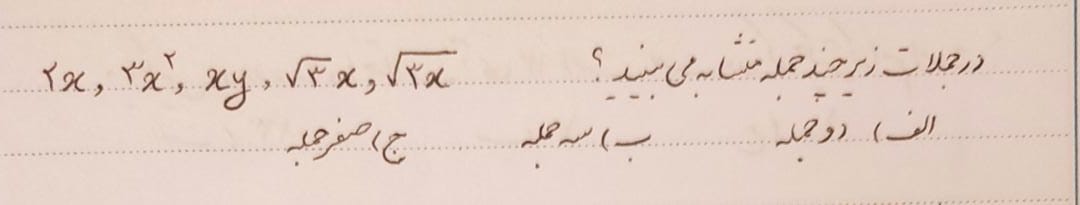 در جملات زیر چند جمله متشابه می بینید؟ ۲x, ۳x², xy, √۳x, √۳x
الف) دو جمله ب) سه جمله ج) صفر جمله